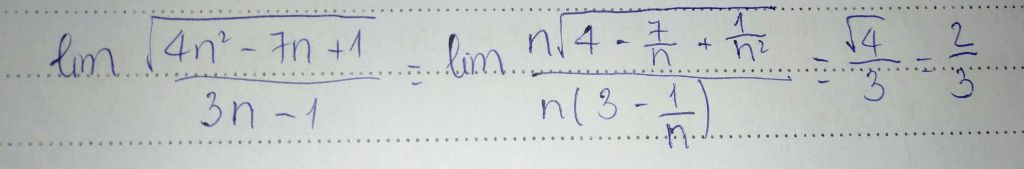 lim √(4n² - 7n + 1) / (3n - 1) = lim n√(4 - 7/n + 1/n²) / n(3 - 1/n) = √4 / 3 = 2/3